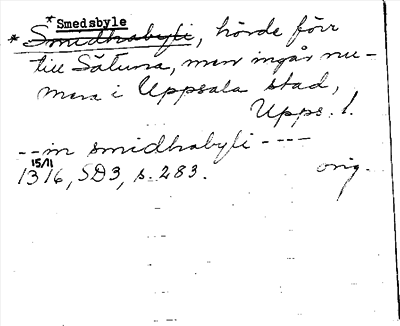 *Smedsbyle
*Smidhabyli, hörde förr
till Säluna, men ingår nu-
mera i Uppsala stad,
Upps. l.
--in smidhabyli ----
15/11
1316, SD3, s. 283. orig.